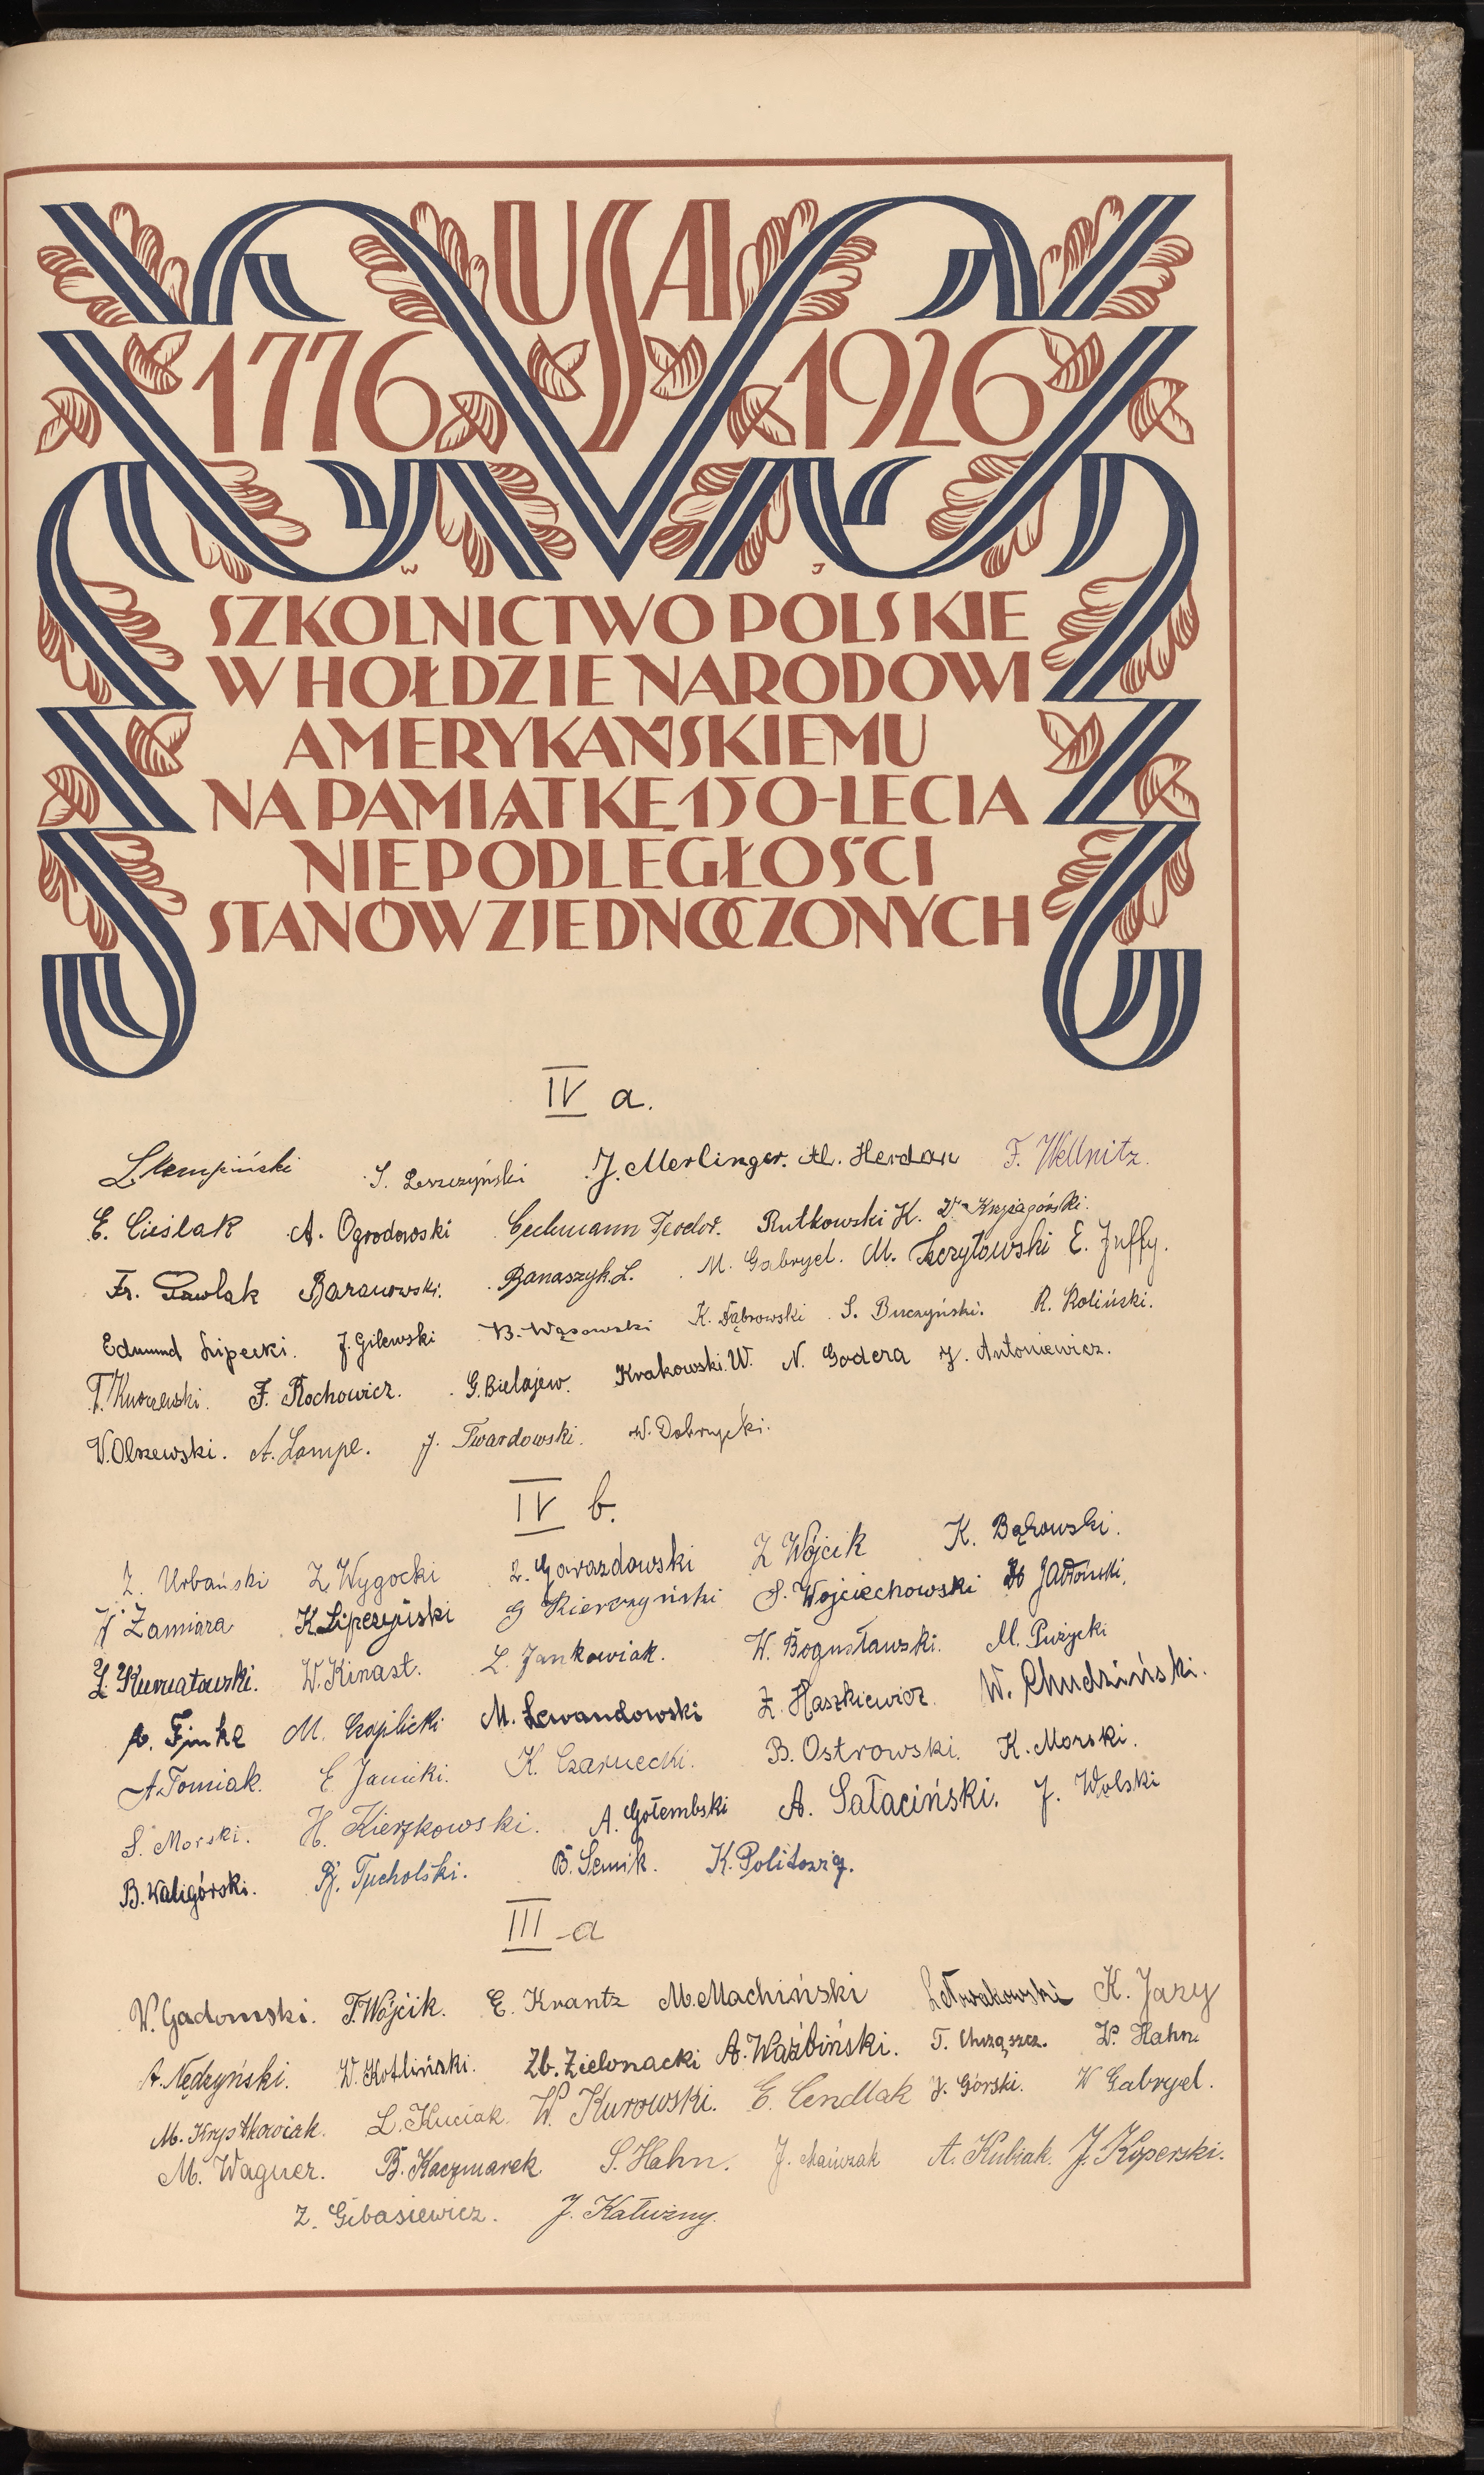 USA
1776 1926
W J
SZKOLNICTWO POLSKIE
W HOŁDZIE NARODOWI
AMERYKAŃSKIEMU
NA PAMIĄTKĘ 150-LECIA
NIEPODLEGŁOŚCI
STANÓW ZJEDNOCZONYCH
IV a.
L. Kempiński S. Leszczyński J. Merlinger. Al. Herdan F. Wellnitz.
E. Cieślak A. Ogrodowski Teodor. Rutkowski K.
Fr. Pawlak Baranowski. Banaszyk L. M. Gabryel. M. E. Juffy.
Edmund Lipecki. J. Gilewski B. Wąsowski K. Dąbrowski S. Buczyński. R. Roliński.
F. Rochowicz. G. Bielajew. Krakowski W. N. Godera J. Antoniewicz.
V. Olszewski. A. Lampe. J. Twardowski. W. Dobrzycki.
IV b.
Z. Urbański Z. Wygocki Z Wójcik K. Bąkowski.
Zamiara K. Lipczyński G S. Wojciechowski Jabłoński.
W. Kinast. L. Jankowiak. W. Bogusławski. M. Pużycki
A. Finke M. Czaplicki M. Lewandowski Z. Haszkiewicz. W. Chudziński.
A. Tomiak. E. Janicki. K. Czarnecki. B. Ostrowski. K. Morski.
S. Morski. H. Kierzkowski. A. Gołembski A. Sałaciński. J. Wolski
B. Waligórski. Tucholski. B. Semik. K. Politowicz.
III a
W. Gadomski. T. Wójcik. E. Krantz M. Machiński K. Jazy
A. Nędzyński. W. Kotliński. Zb. Zielonacki A. Waźbiński. T. Chrząszcz. W. Hahn.
M. Krystkowiak. L. Kuciak. W. Kurowski. E. Cendlak J. Górski. W Gabryel.
M. Wagner. B. Kaczmarek. S. Hahn. J. Mańczak A. Kubiak. J. Koperski.
Z. Gibasiewicz. J. Kałużny.